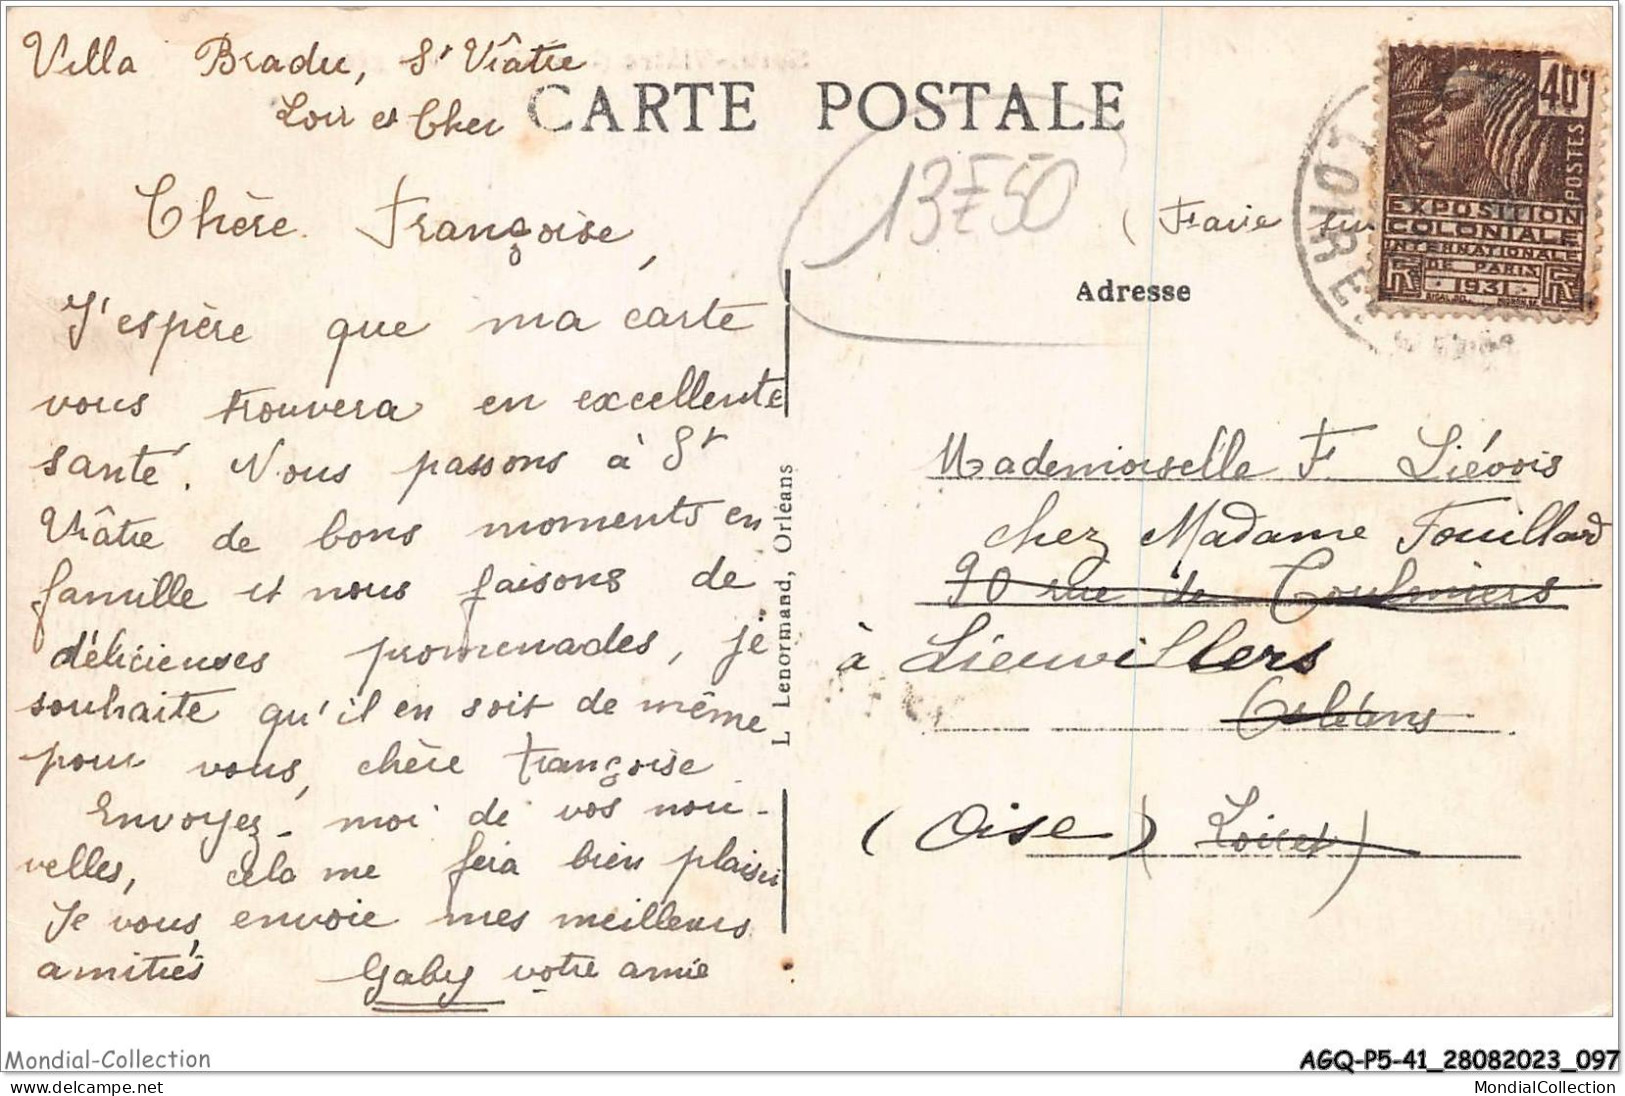 Villa Bradu, St Viâtre
Loir et Cher
CARTE POSTALE
Chère Françoise,
J'espère que ma carte
vous trouvera en excellente
santé. Nous passons à St
Viâtre de bons moments en
famille et nous faisons de
délicieuses promenades, je
souhaite qu'il en soit de même
pour vous, chère Françoise
Envoyez-moi de vos nou-
velles, cela me fera bien plaisir
Je vous envoie mes meilleurs
amitiés Gaby votre amie
L. Lenormand, Orléans
13F50
(
Adresse
40c
POSTES
EXPOSITION
COLONIALE
INTERNATIONALE
DE PARIS
1931
LOIRE
Mademoiselle F. Liévois
chez Madame Fouillard
90 rue de Coulmiers
à Lieuvillers
Orléans
(Oise) Loiret)
Mondial-Collection
AGQ-P5-41_28082023_097
www.delcampe.net
MondialCollection